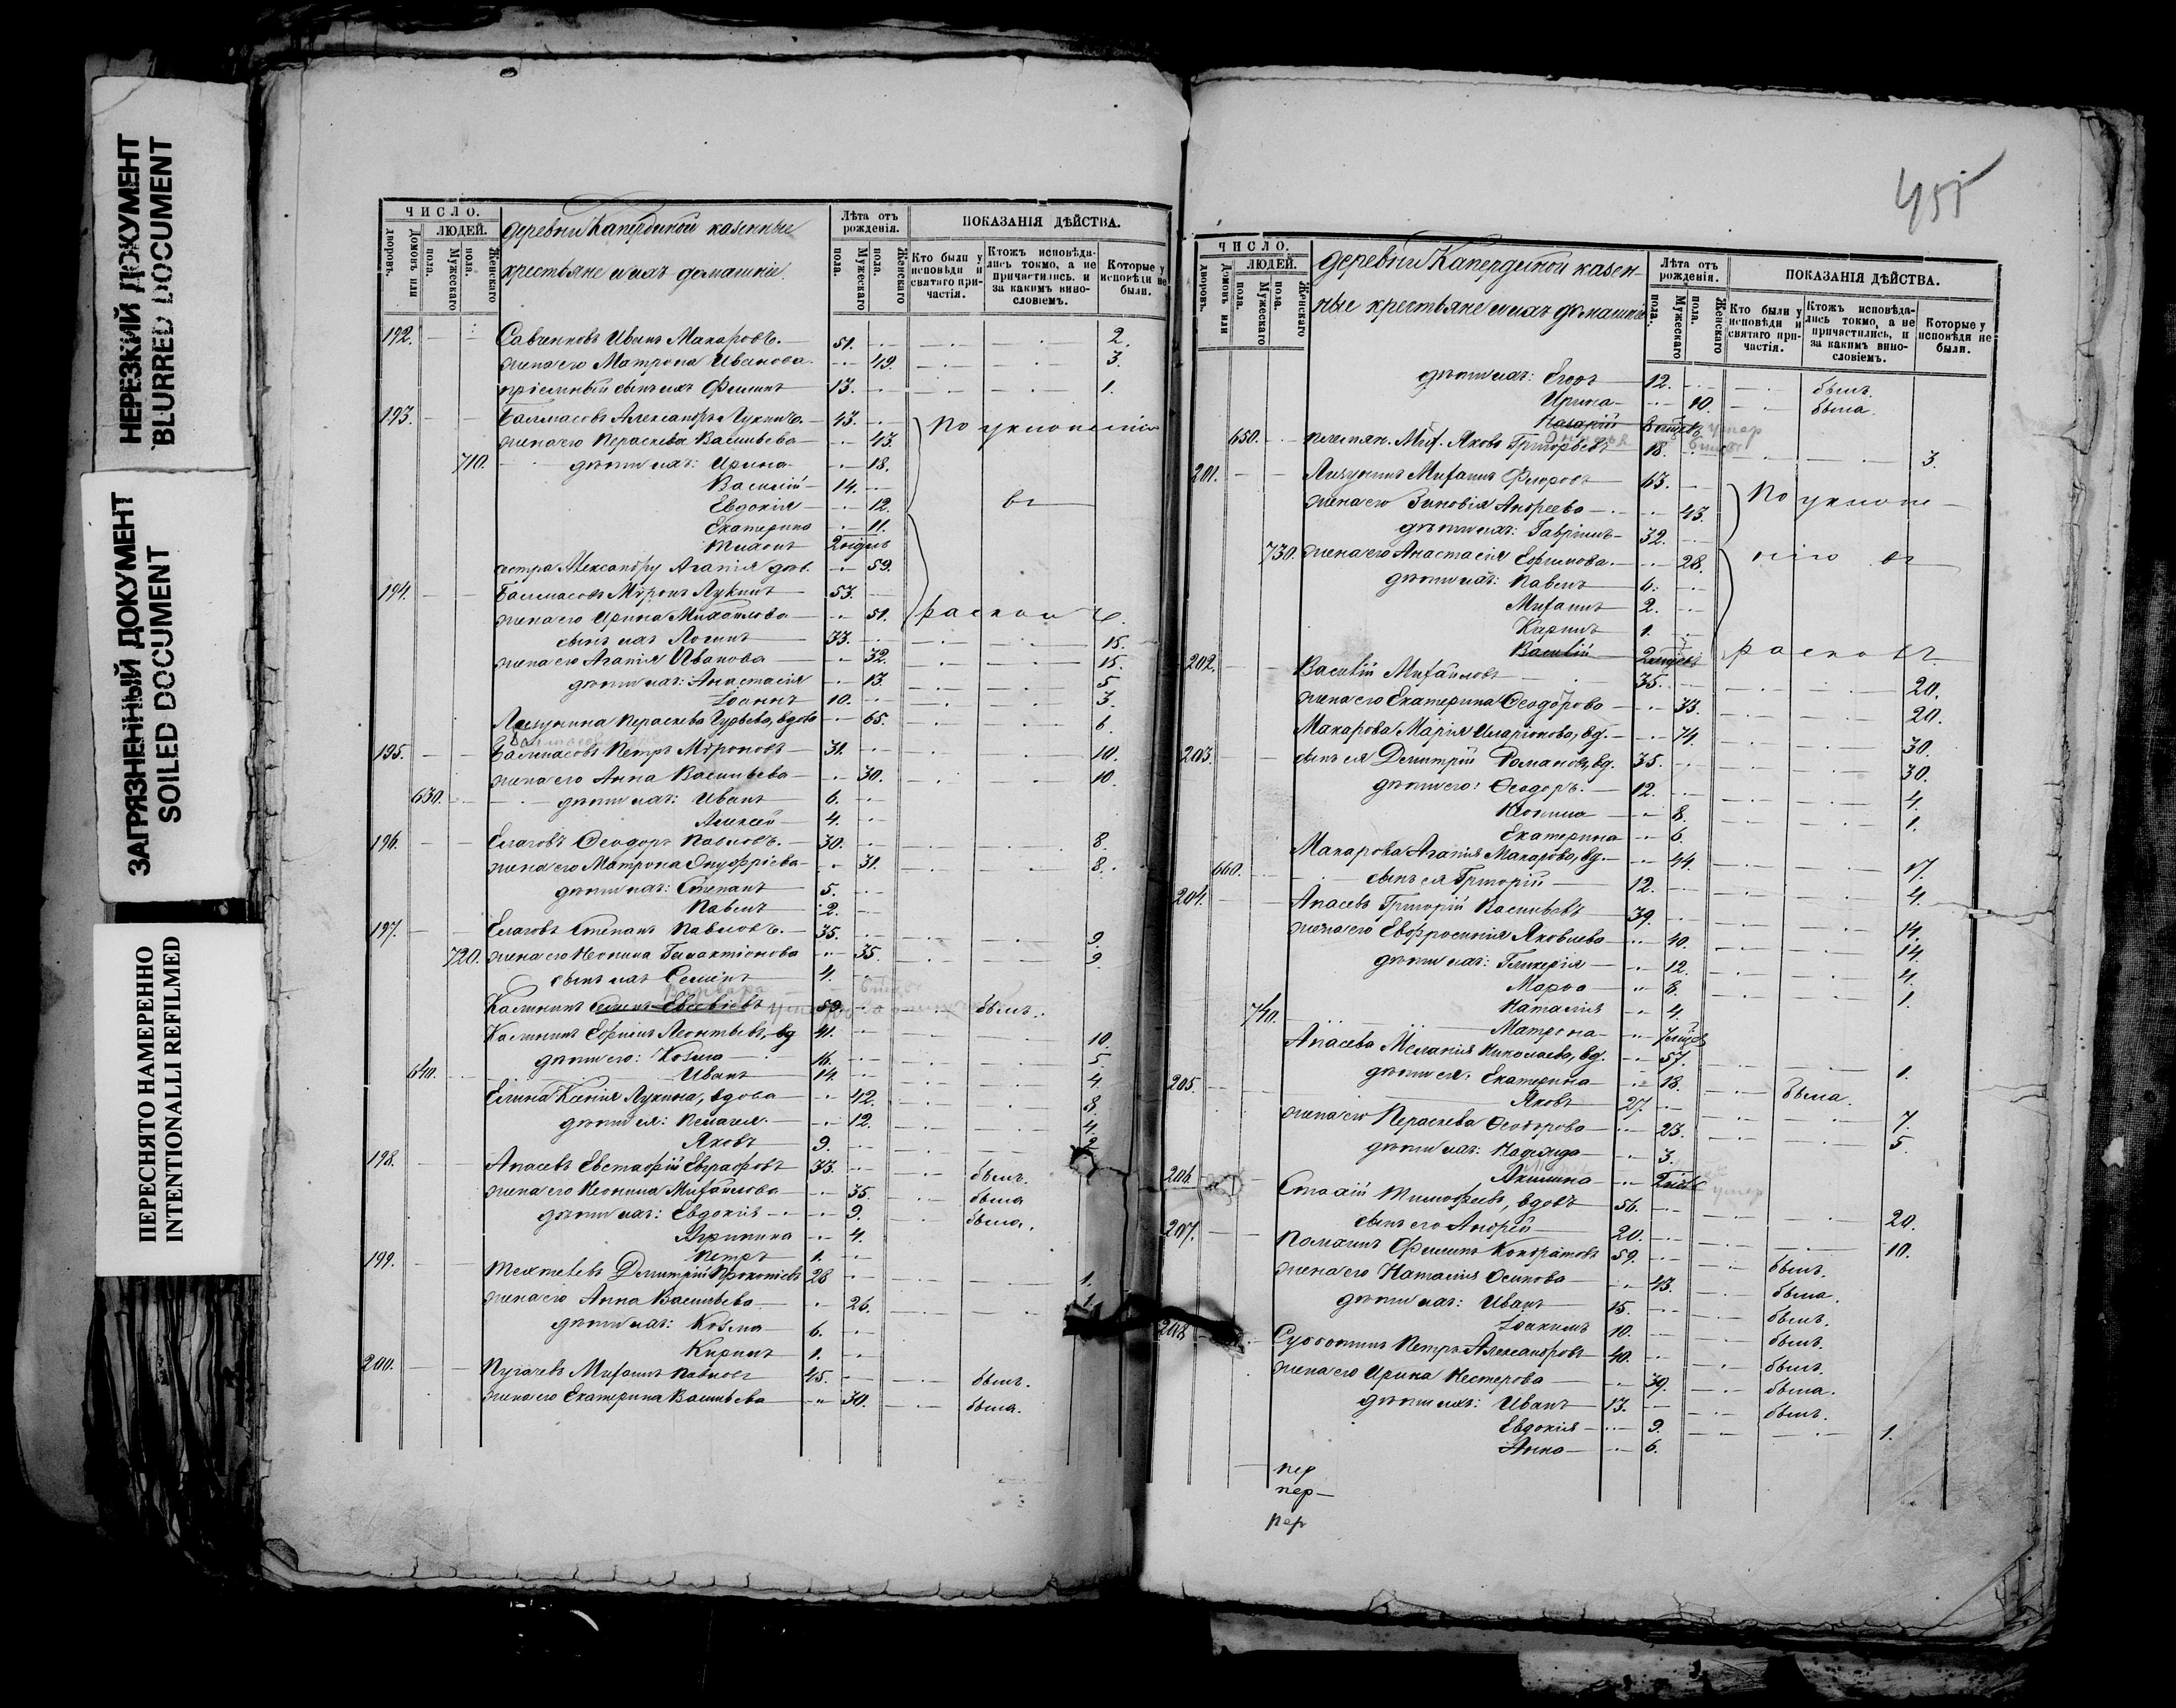 НЕРЕЗКИЙ ДОКУМЕНТ
BLURRED DOCUMENT
ЗАГРЯЗНЕННЫЙ ДОКУМЕНТ
SOILED DOCUMENT
ПЕРЕСНЯТО НАМЕРЕННО
INTENTIONALLI REFILMED
ЧИСЛО.
Домовъ или дворовъ.
ЛЮДЕЙ.
Мужескаго пола.
Женскаго пола.
деревни Капердиной казенные
крестьяне и ихъ домашніе
Лѣта отъ рожденія.
Мужескаго пола.
Женскаго пола.
ПОКАЗАНІЯ ДѢЙСТВА.
Кто были у исповѣди и святаго причастія.
Ктожъ исповѣдались токмо, а не причастились, и за какимъ винословіемъ.
Которые у исповѣди не были.
192. Савченковъ Иванъ Макаровъ. 51. 2.
жена его Матрона Иванова 49. 3.
пріемный сынъ ихъ Филипъ 13. 1.
193. Балмасовъ Александръ Лукинъ. 43. По уклоненію
жена его Параскева Васильева 43.
710. дѣти ихъ: Ирина 18.
Василій 14.
Евдокія 12. въ
Екатерина 11.
сестра Александру Агапія дѣв. 59.
194. Балмасовъ Миронъ Лукинъ 53.
жена его Ирина Михайлова 51. расколъ.
сынъ ихъ Логинъ 33. 15.
жена его Агапія Иванова 32. 15.
дѣти ихъ: Анастасія 13. 5
Іоаннъ 10. 3.
Параскева вдова 65. 6.
195. Балмасовъ Петръ Мироновъ 31. 10.
жена его Анна Васильева 30. 10.
630. дѣти ихъ: Иванъ 6.
Алексѣй 4.
196. Елаговъ Ѳеодоръ Павловъ. 30. 8.
жена его Матрона Онуфріева 31. 8.
дѣти ихъ: Степанъ 5.
Павелъ 2.
197. Елаговъ Степанъ Павловъ. 35. 9.
720. жена его Неонила Галактіонова 35. 9.
сынъ ихъ Семенъ 4.
Варвара
Калининъ Евсевіевъ 59. былъ.
Калининъ Ефимъ Леонтьевъ, вд 41. 10.
дѣти его: Козма 16. 5.
640. Иванъ 14. 4.
Елина Ксенія Лукина, вдова 42. 8.
дѣти ея: Пелагея 12. 4.
Яковъ 9. 2.
198. Апасевъ Евстафій Евграфовъ 33. былъ.
жена его Неонила Михайлова 35. была
дѣти ихъ: Евдокія 9. была.
Агрипина 4.
Петръ 1.
199. Димитрій Прокопіевъ 28 1.
жена его Анна Васильева 26. 1.
дѣти ихъ: Козма 6.
Кирилъ 1.
200. Пугачевъ Михаилъ Павловъ 45. былъ.
жена его Екатерина Васильева 30. была.
455
ЧИСЛО.
Домовъ или дворовъ.
ЛЮДЕЙ.
Мужескаго пола.
Женскаго пола.
деревни Капердиной казен-
ные крестьяне и ихъ домашніе
Лѣта отъ рожденія.
Мужескаго пола.
Женскаго пола.
ПОКАЗАНІЯ ДѢЙСТВА.
Кто были у исповѣди и святаго причастія.
Ктожъ исповѣдались токмо, а не причастились, и за какимъ винословіемъ.
Которые у исповѣди не были.
дѣти ихъ: Егоръ 12. былъ.
Ирина 10. была.
Назарій умер
650. племян. Мих. Яковъ Григорьевъ 18. 3.
201. Михаилъ 63. По уклоне-
жена его Зиновія Андреева 43.
дѣти ихъ: Гавріилъ 32.
730. жена его Анастасія Ефимова. 28. нію въ
дѣти ихъ: Павелъ 6.
Михаилъ 2.
Карпъ 1.
Василій расколъ.
202. Василій Михайловъ 35. 20.
жена его Екатерина Ѳеодорова 33. 20.
Макарова Марія Иларіонова, вд. 74. 30.
203. сынъ ея Димитрій Романовъ, вд. 35. 30.
дѣти его: Ѳеодоръ. 12. 4.
Неонила 8. 1.
Екатерина 6.
Макарова Агапія Макарова, вд. 44. 17.
660. сынъ ея Григорій 12. 4.
204. Апасевъ Григорій Васильевъ 39. 14.
жена его Евфросинія Яковлева 40. 14.
дѣти ихъ: Гликерія 12. 4.
Марѳа 8. 1.
740. Наталія 4.
Матрона
Апасева Меланія Николаева, вд. 57. 1.
205. дѣти ея: Екатерина 18. была.
Яковъ 27. 7.
жена его Параскева Ѳеодорова 23. 5
дѣти ихъ: Надежда 3.
Акилина умер
206. Тимофеевъ, вдовъ 56. 20.
сынъ его Андрей 20. 10.
207. Филипъ Кондратовъ 59. былъ.
жена его Наталія Осипова 43. была.
дѣти ихъ: Иванъ 15. былъ.
Іоакимъ 10. былъ.
208 Субботинъ Петръ Александровъ 40. былъ.
жена его Ирина Нестерова 39. была.
дѣти ихъ: Иванъ 13. былъ.
Евдокія 9. 1.
Анна 6.
пер
пер
пер